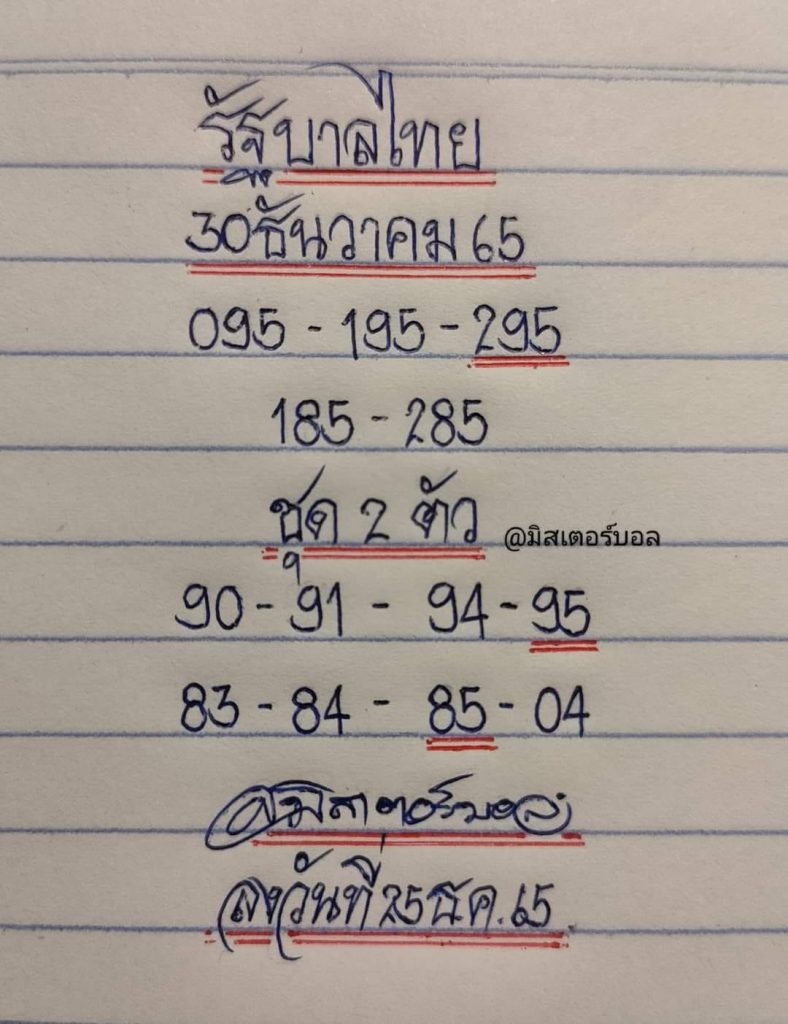 รัฐบาลไทย
30ธันวาคม 65
095 - 195 - 295
185 - 285
ชุด 2 ตัว
@มิสเตอร์บอล
90 - 91 - 94 - 95
83 - 84 - 85 - 04
@มิสเตอร์บอล
ลงวันที่ 25 ธ.ค. 65